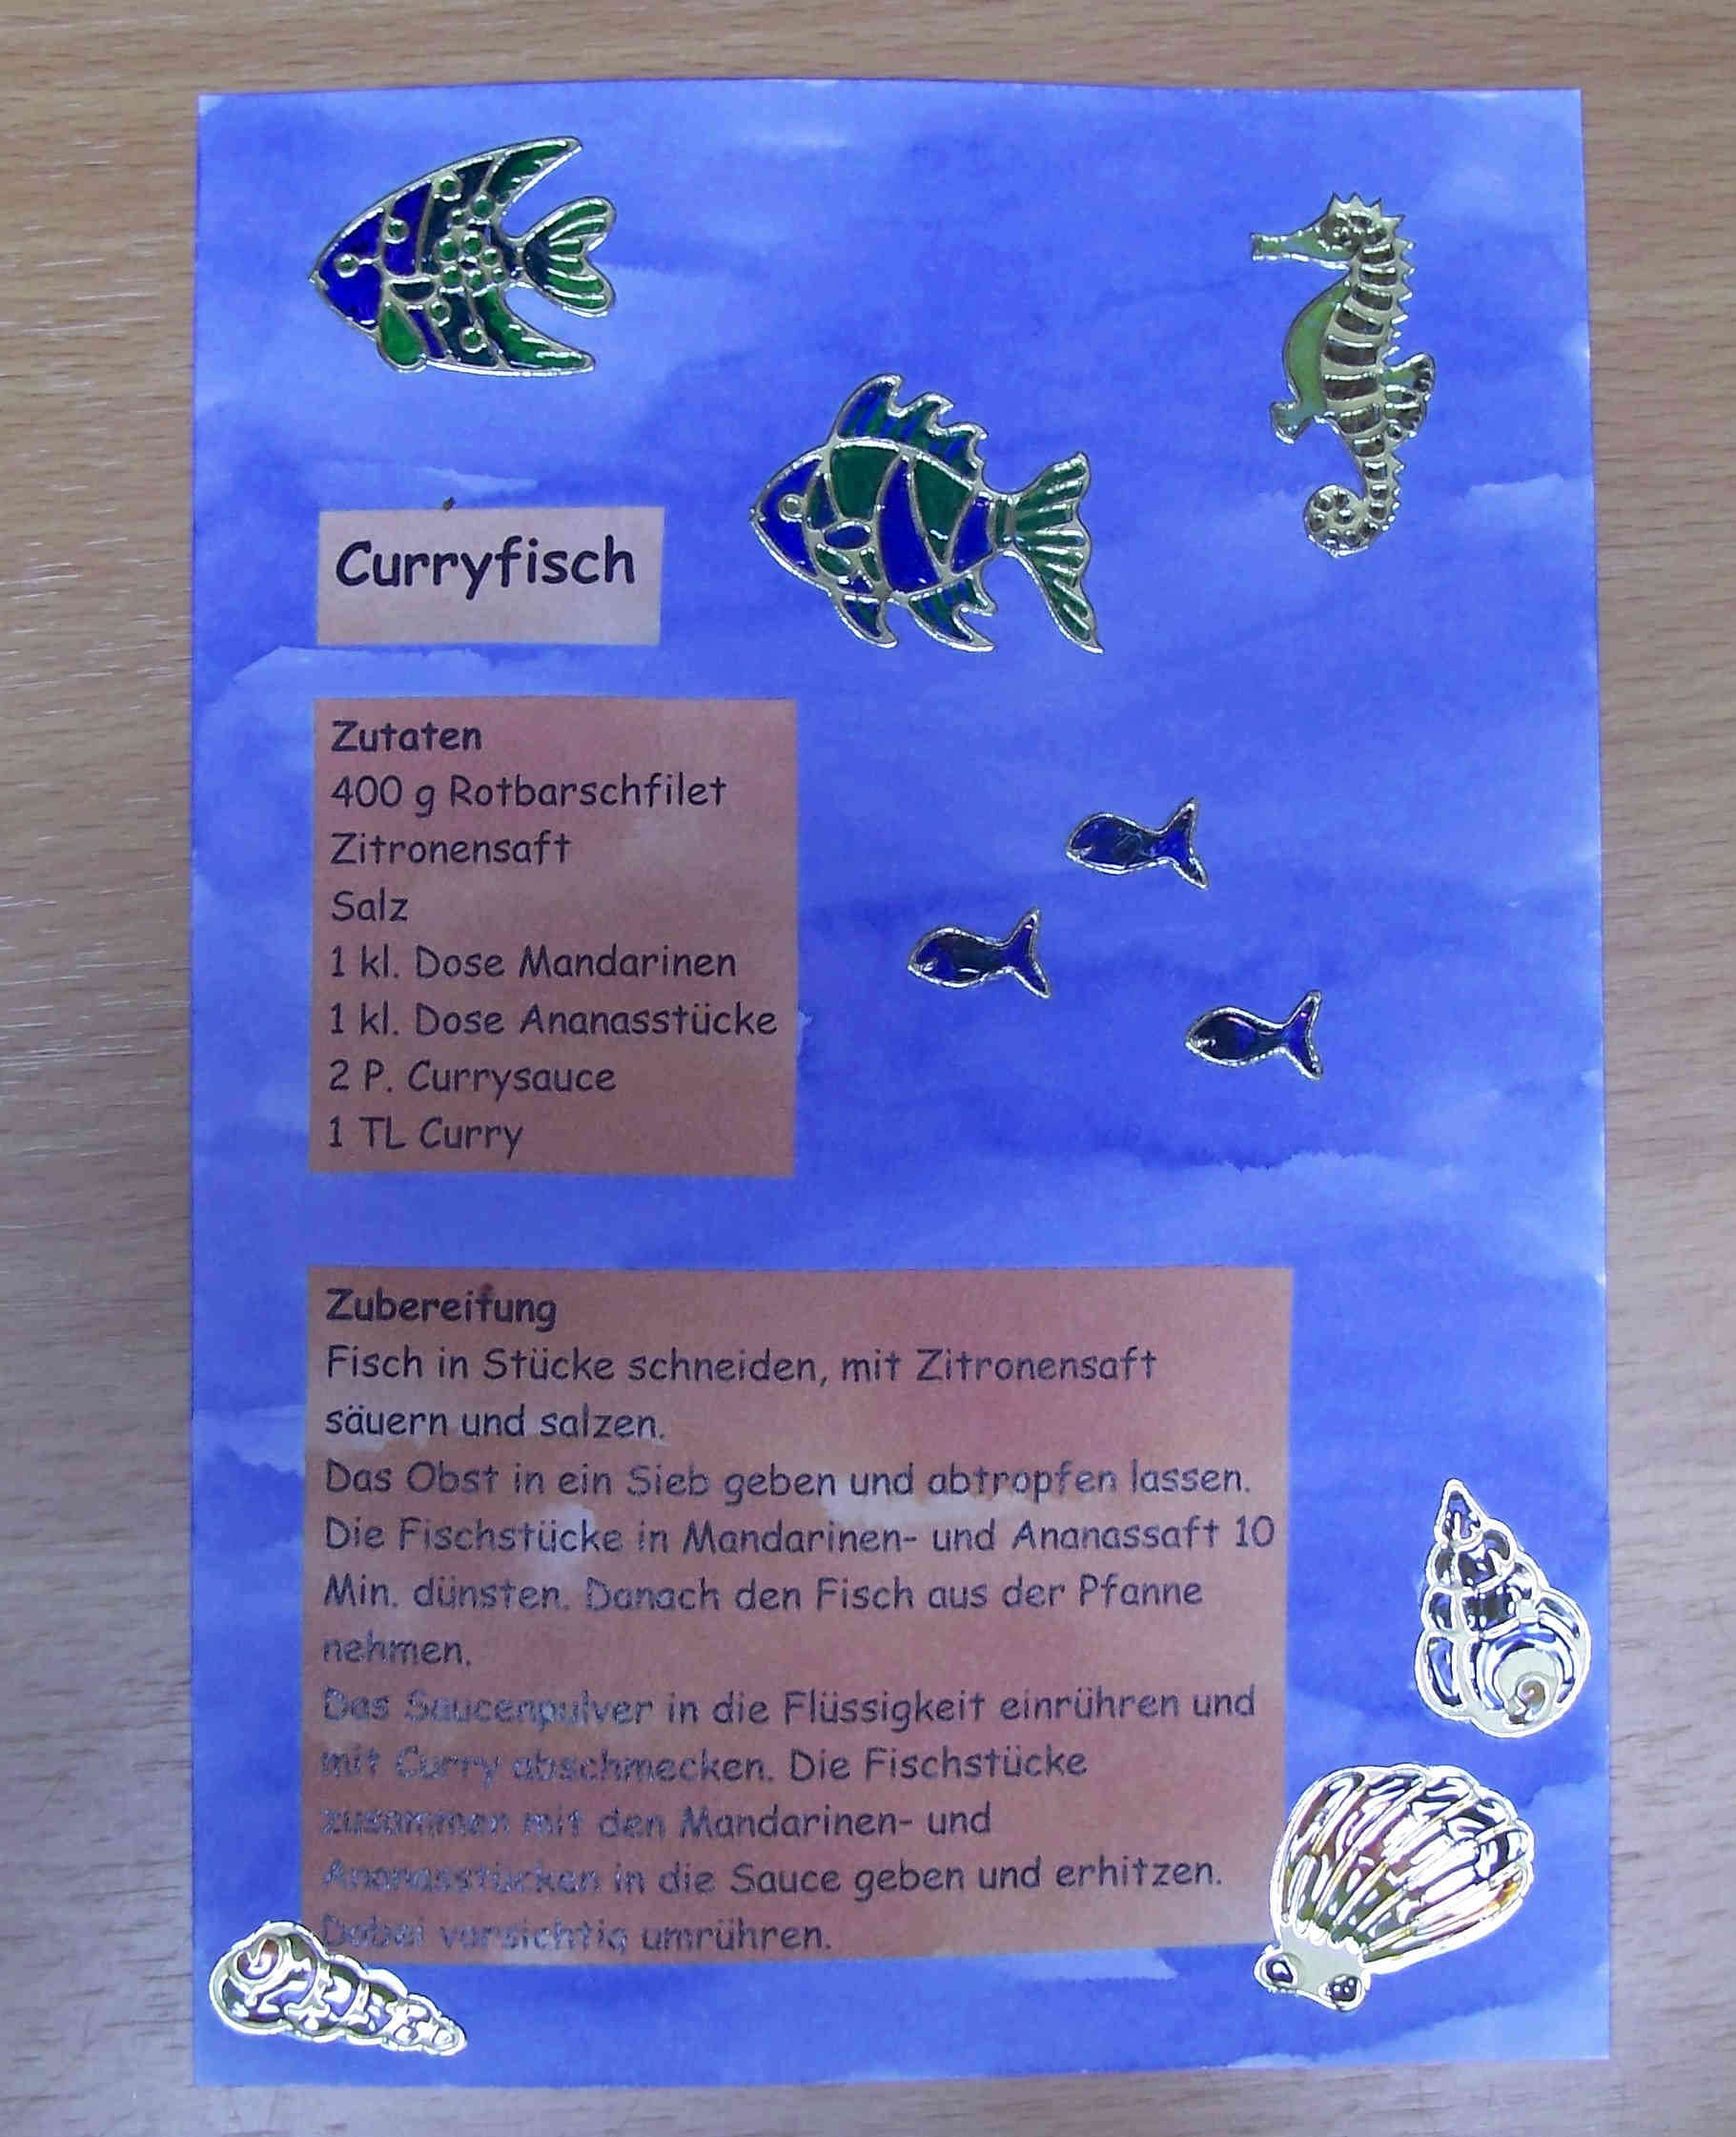 Curryfisch
Zutaten
400 g Rotbarschfilet
Zitronensaft
Salz
1 kl. Dose Mandarinen
1 kl. Dose Ananasstücke
2 P. Currysauce
1 TL Curry
Zubereitung
Fisch in Stücke schneiden, mit Zitronensaft
säuern und salzen.
Das Obst in ein Sieb geben und abtropfen lassen.
Die Fischstücke in Mandarinen- und Ananassaft 10
Min. dünsten. Danach den Fisch aus der Pfanne
nehmen.
Das Saucenpulver in die Flüssigkeit einrühren und
mit Curry abschmecken. Die Fischstücke
zusammen mit den Mandarinen- und
Ananasstücken in die Sauce geben und erhitzen.
Dabei vorsichtig umrühren.